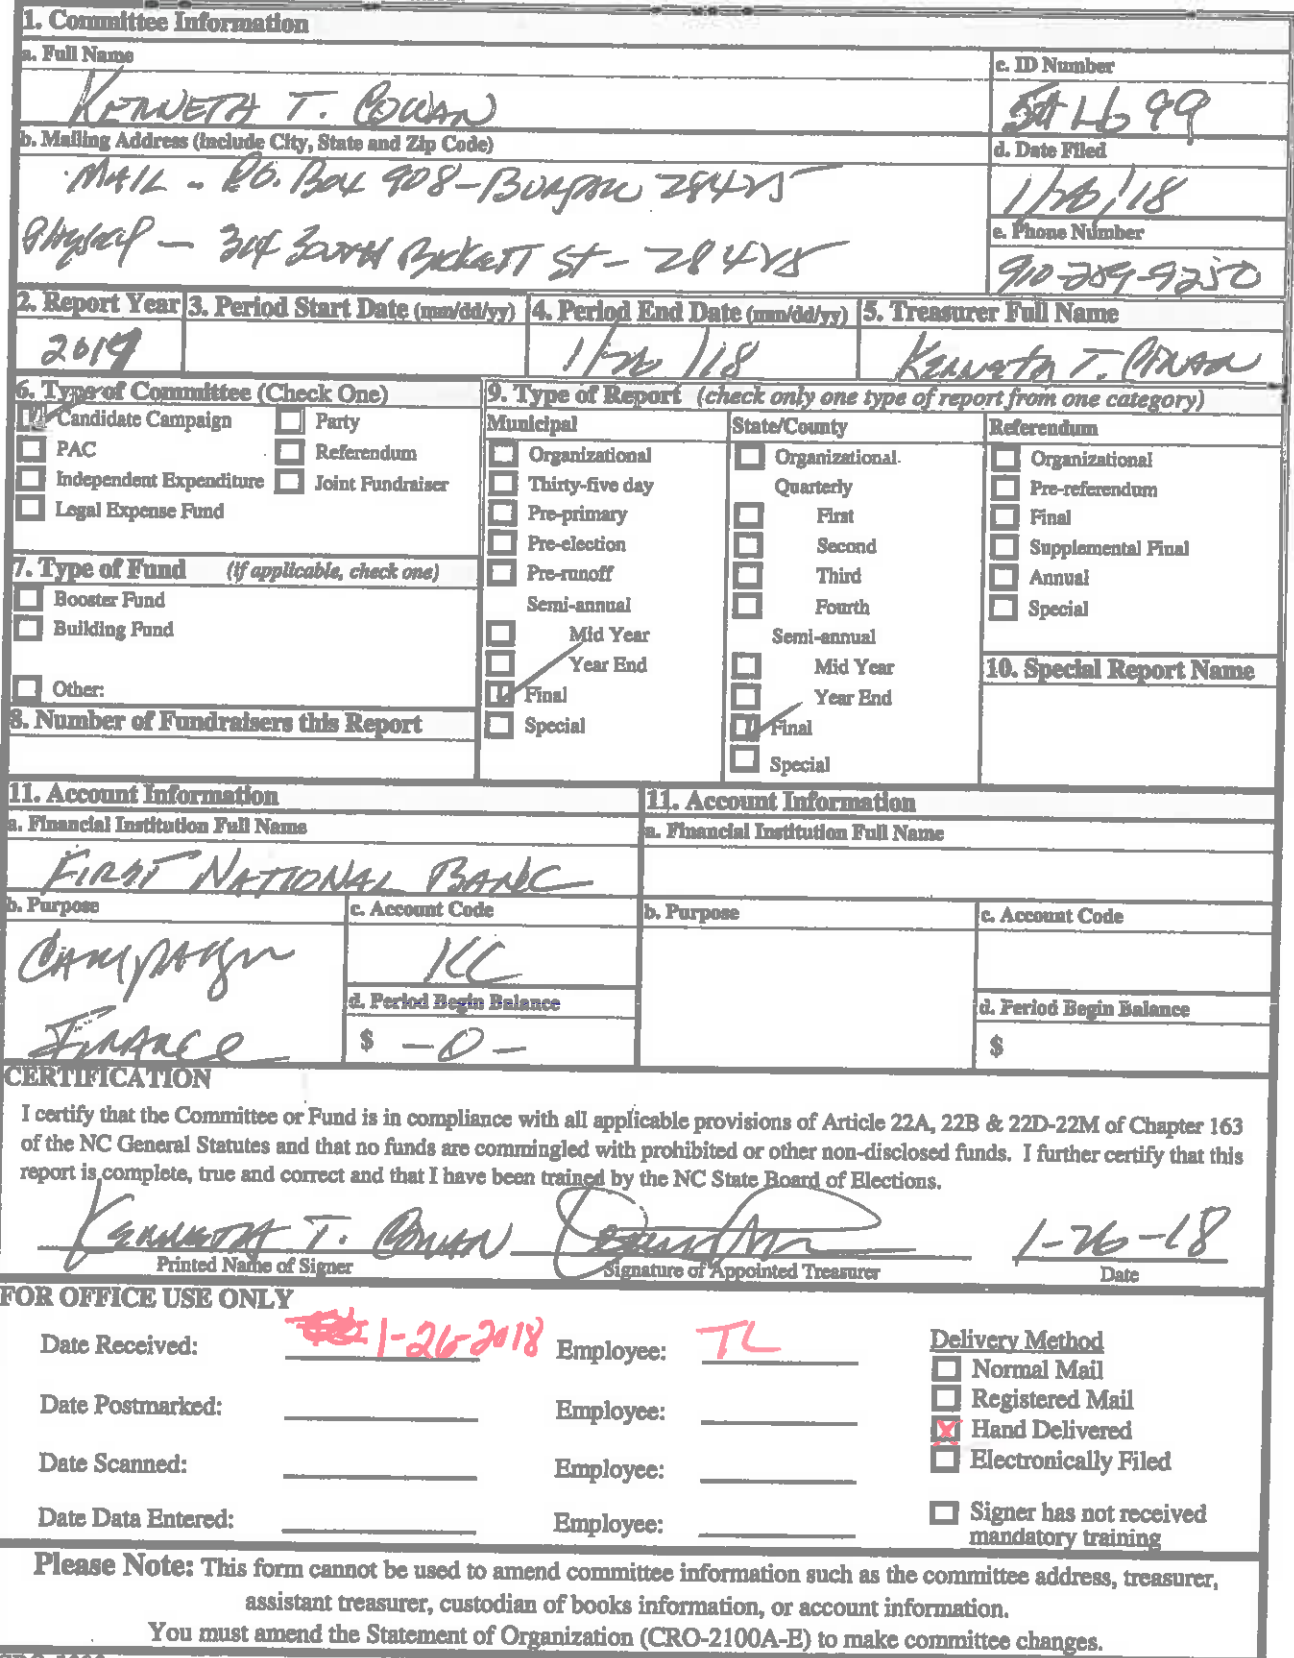 1. Committee Information
a. Full Name
c. ID Number
KENNETH T. COWAN
b. Mailing Address (include City, State and Zip Code)
d. Date Filed
MAIL - P.O. BOX 908 - BURGAW 28425
1/26/18
e. Phone Number
Physical - 304 SOUTH BICKETT ST - 28425
910-259-9250
2. Report Year 3. Period Start Date (mm/dd/yy) 4. Period End Date (mm/dd/yy) 5. Treasurer Full Name
1/26/18 KENNETH T. COWAN
6. Type of Committee (Check One)
Candidate Campaign Party
PAC Referendum
Independent Expenditure Joint Fundraiser
Legal Expense Fund
7. Type of Fund (if applicable, check one)
Booster Fund
Building Fund
Other:
8. Number of Fundraisers this Report
9. Type of Report (check only one type of report from one category)
Municipal
Organizational
Thirty-five day
Pre-primary
Pre-election
Pre-runoff
Semi-annual
Mid Year
Year End
Final
Special
State/County
Organizational
Quarterly
First
Second
Third
Fourth
Semi-annual
Mid Year
Year End
Final
Special
Referendum
Organizational
Pre-referendum
Final
Supplemental Final
Annual
Special
10. Special Report Name
11. Account Information
a. Financial Institution Full Name
FIRST NATIONAL BANK
b. Purpose
CAMPAIGN
FINANCE
c. Account Code
KC
d. Period Begin Balance
$ -0-
11. Account Information
a. Financial Institution Full Name
b. Purpose
c. Account Code
d. Period Begin Balance
$
CERTIFICATION
I certify that the Committee or Fund is in compliance with all applicable provisions of Article 22A, 22B & 22D-22M of Chapter 163
of the NC General Statutes and that no funds are commingled with prohibited or other non-disclosed funds. I further certify that this
report is complete, true and correct and that I have been trained by the NC State Board of Elections.
KENNETH T. COWAN 1-26-18
Printed Name of Signer Signature of Appointed Treasurer Date
FOR OFFICE USE ONLY
Date Received: 1-26-2018 Employee: TL
Date Postmarked: Employee:
Date Scanned: Employee:
Date Data Entered: Employee:
Delivery Method
Normal Mail
Registered Mail
Hand Delivered
Electronically Filed
Signer has not received
mandatory training
Please Note: This form cannot be used to amend committee information such as the committee address, treasurer,
assistant treasurer, custodian of books information, or account information.
You must amend the Statement of Organization (CRO-2100A-E) to make committee changes.